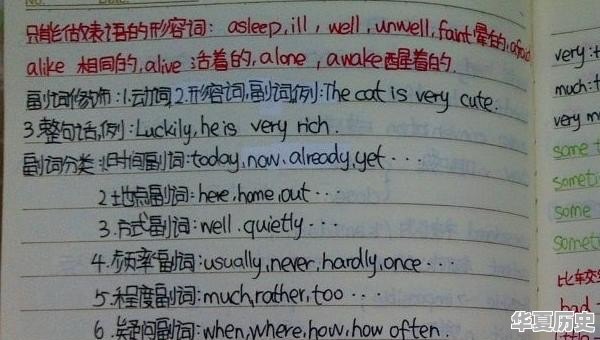 只能做表语的形容词: asleep, ill, well, unwell, faint 晕的, afraid
alike 相同的, alive 活着的, alone, awake 醒着的.
副词修饰: 1.动词 2.形容词, 副词, 例: The cat is very cute.
3.整句话, 例: Luckily, he is very rich.
副词分类: 1.时间副词: today, now, already, yet ···
2.地点副词: here, home, out ···
3.方式副词: well, quietly ···
4.频率副词: usually, never, hardly, once ···
5.程度副词: much, rather, too ···
6.疑问副词: when, where, how, how often.
very:
much:
very
some
some
比较
had
华夏历史